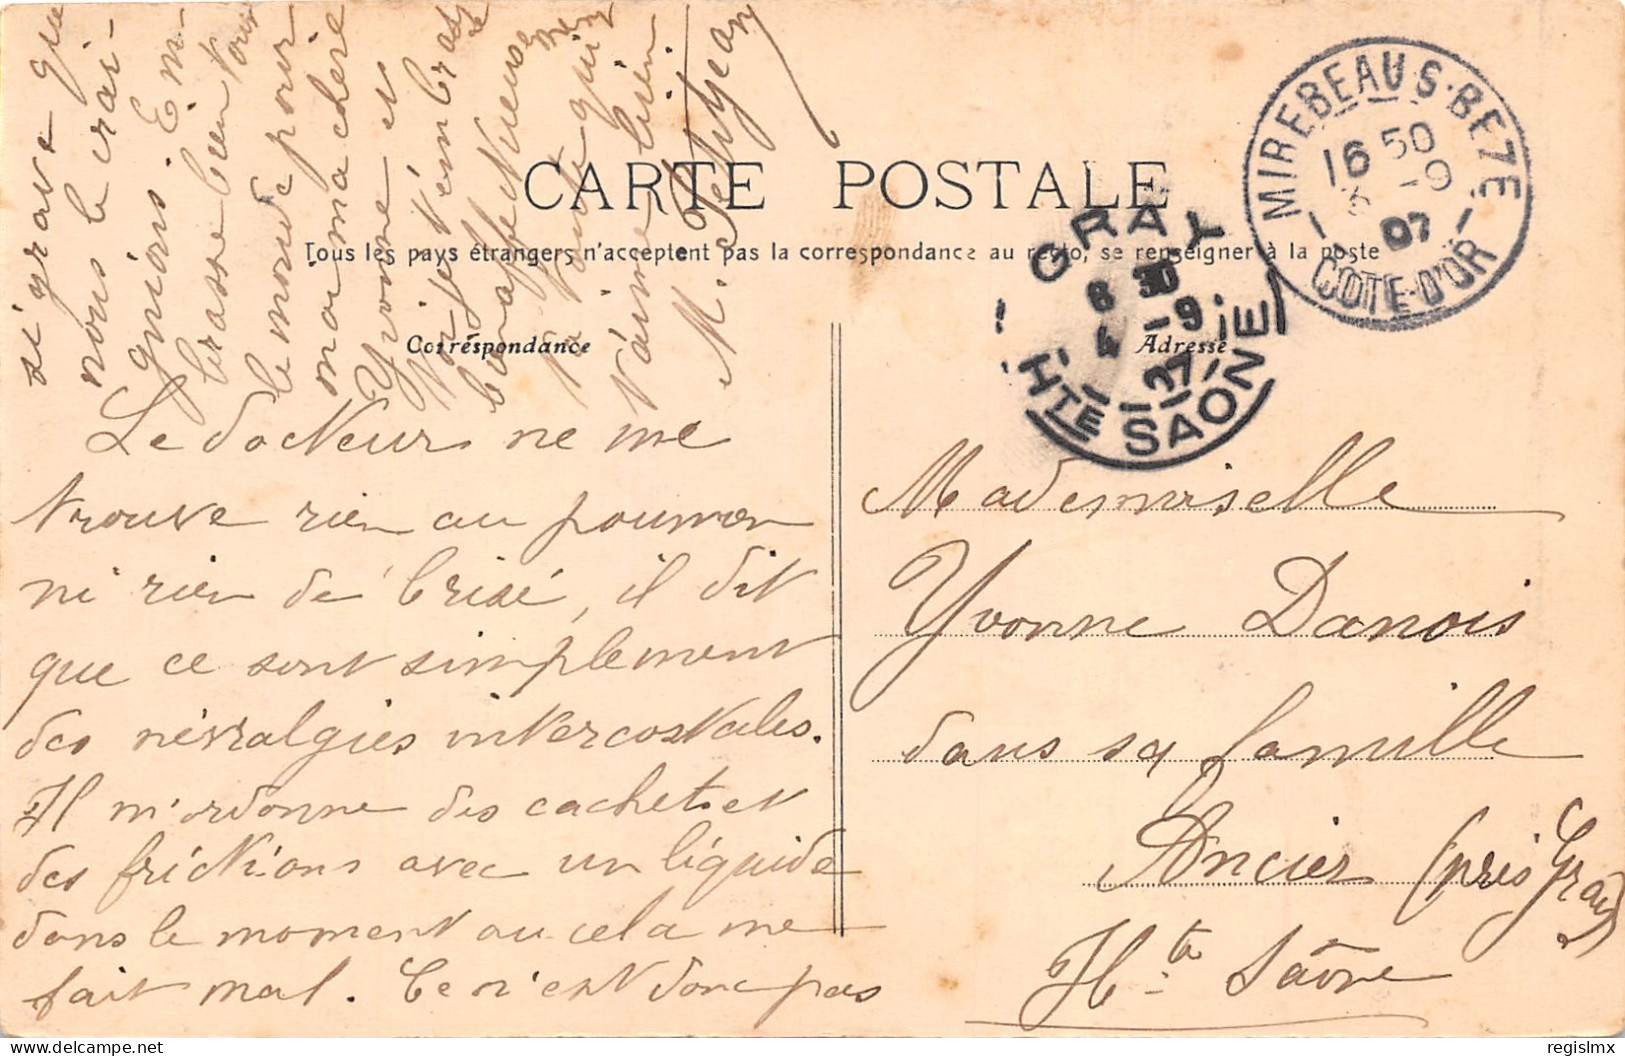 CARTE POSTALE
Tous les pays étrangers n'acceptent pas la correspondance au recto, se renseigner à la poste
Correspondance
Adresse
MIREBEAU S-BEZE
16 50
3 -9
07
COTE-D'OR
GRAY
6 30
4 -9
07
HTE SAONE
Le docteur ne me
trouve rien au poumon
ni rien de brisé, il dit
que ce sont simplement
des névralgies intercostales.
Il m'ordonne des cachets et
des frictions avec un liquide
dans le moment où cela me
fait mal. Ce n'est donc pas
si grave que
nous le crai-
gnions. Em-
brasse bien tout
le monde pour
moi ma chère
Yvonne et
je t'embrasse
bien affectueusement
tante qui
t'aime bien
M. Petitjean
Mademoiselle
Yvonne Danois
dans sa famille
Ancier (près Gray)
Hte Saône
delcampe.net
regislmx